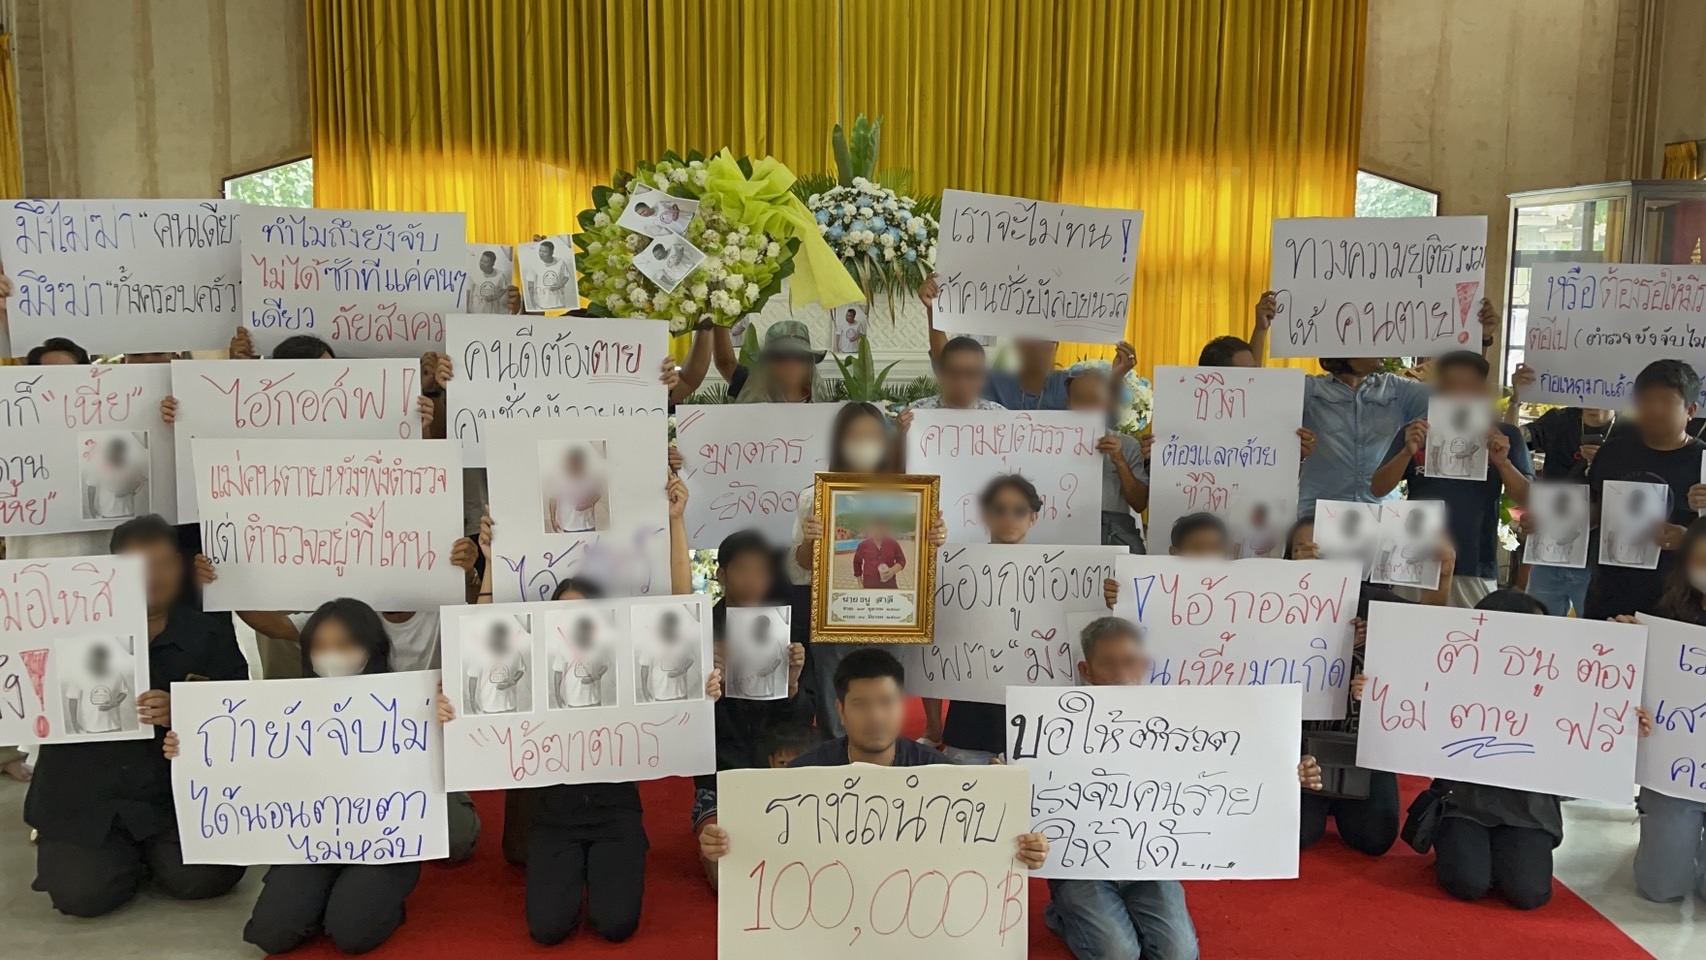 มึงไม่ฆ่า "คนเดียว
มึงฆ่า "ทั้งครอบครัว
ทำไมถึงยังจับ
ไม่ได้ ซักทีแค่คนๆ
เดียว ภัยสังคม
คนดีต้องตาย
คนชั่วยังลอยนวล
เราจะไม่ทน!
ถ้าคนชั่วยังลอยนวล
ทวงความยุติธรรม
ให้ คนตาย!
หรือ ต้องรอให้มี
ต่อไป (ตำรวจยังจับไม่
ก่อเหตุมาแล้ว
ก็ "เหี้ย"
ไอ้กอล์ฟ!
แม่คนตายหวังพึ่งตำรวจ
แต่ ตำรวจอยู่ที่ไหน
ไอ้
"ฆาตกร
ยังลอ
ความยุติธรรม
"ชีวิต"
ต้องแลกด้วย
"ชีวิต"
นายธนู สาลี
น้องกูต้องตา
เพราะ "มึง
! ไอ้กอล์ฟ
เหี้ยมาเกิด
ตี๋ ธนู ต้อง
ไม่ ตาย ฟรี
ถ้ายังจับไม่
ได้นอนตายตา
ไม่หลับ
"ไอ้ฆาตกร"
รางวัลนำจับ
100,000 ฿
ขอให้ตำรวจ
เร่งจับคนร้าย
ให้ได้....